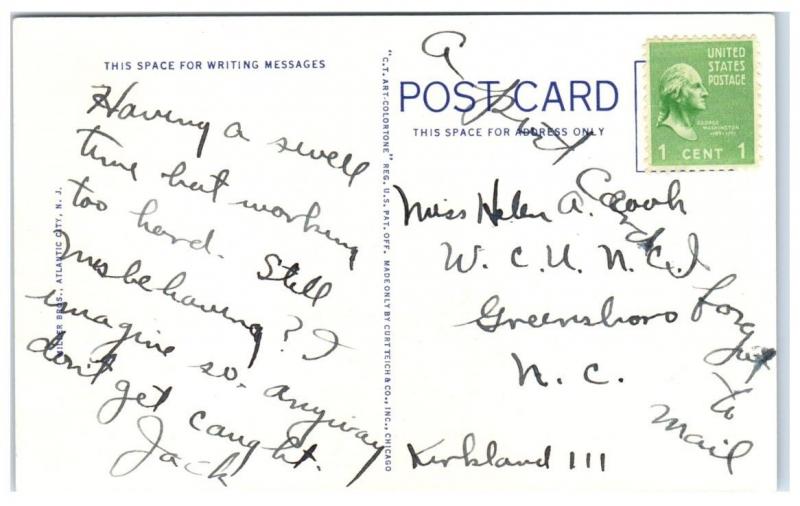 THIS SPACE FOR WRITING MESSAGES
Having a swell
time but working
too hard. Still
misbehaving? I
imagine so, anyway
don't get caught.
Jack
MILLER BROS., ATLANTIC CITY, N. J.
"C.T. ART-COLORTONE" REG. U.S. PAT. OFF. MADE ONLY BY CURT TEICH & CO., INC., CHICAGO
POST CARD
THIS SPACE FOR ADDRESS ONLY
UNITED
STATES
POSTAGE
GEORGE
WASHINGTON
1 CENT 1
Miss Helen A.
W. C. U. N. C.
Greensboro
N. C.
Kirkland 111
A
Card
I
forgot
to
mail